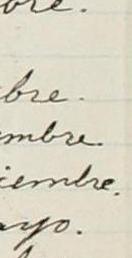 bre.
bre.
mbre.
iembre.
ayo.